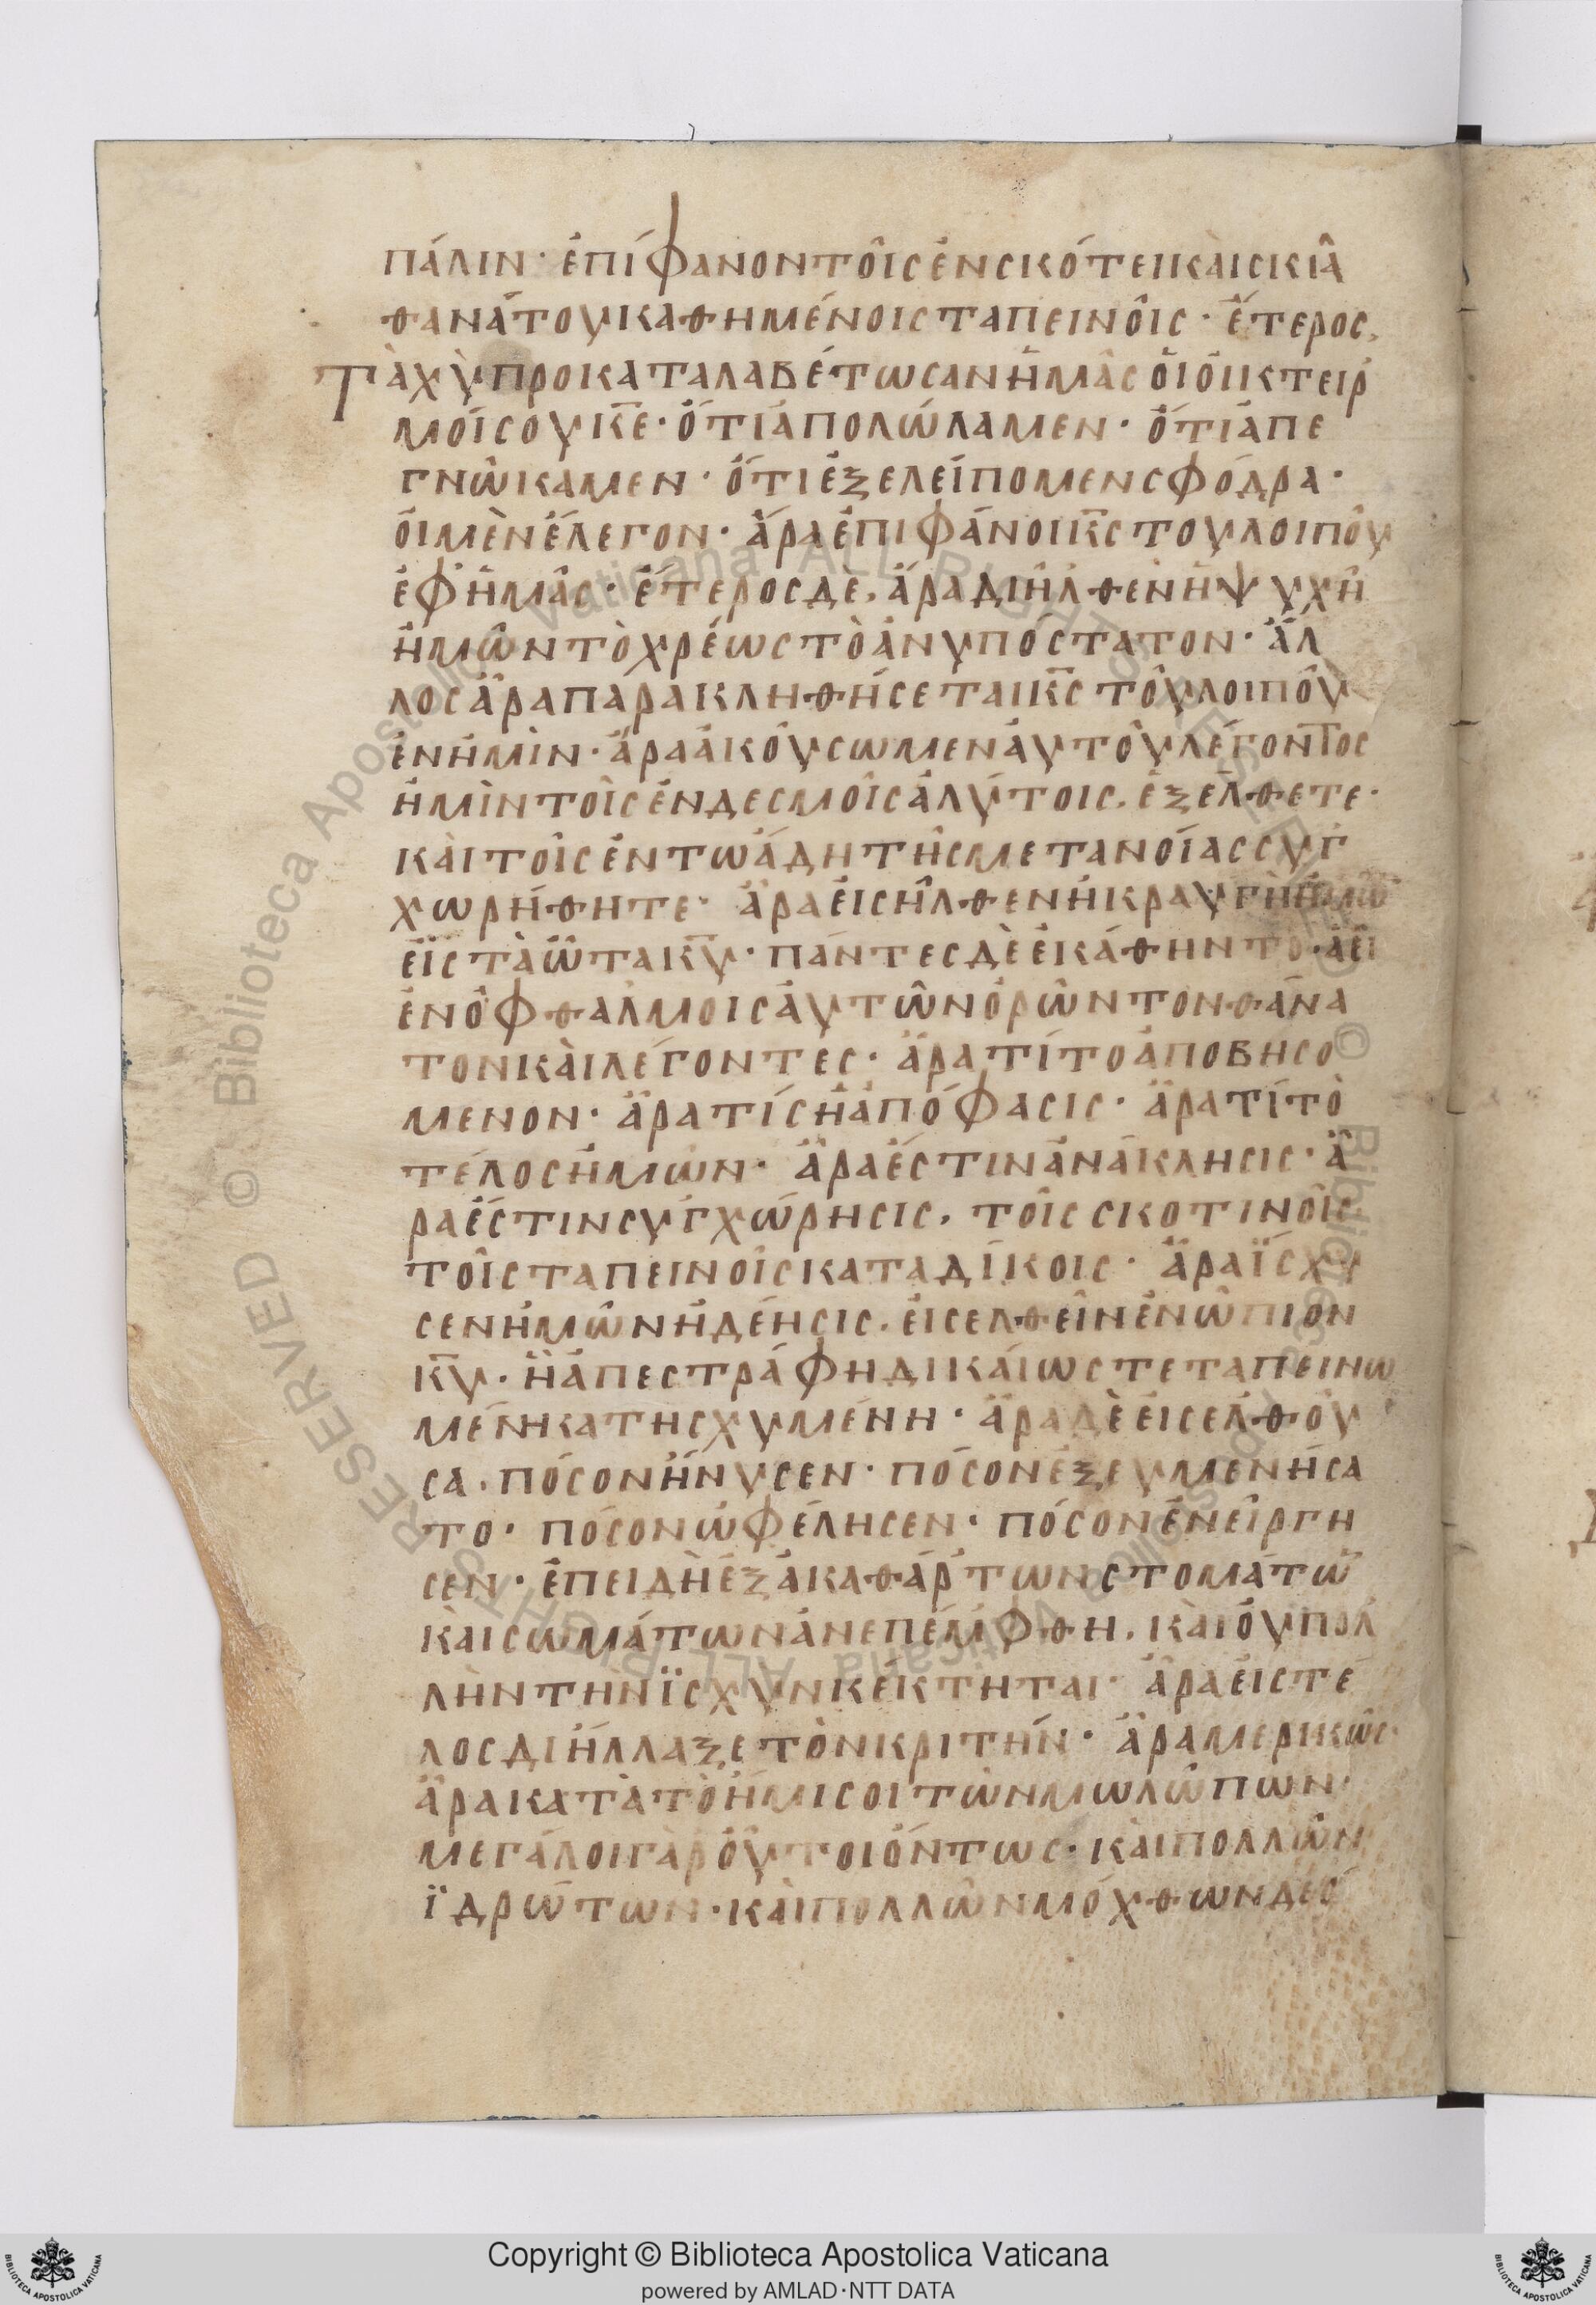 πάλιν· ἐπίφανον τοῖς ἐν σκότει καὶ σκιᾶ
θανάτου καθημένοις ταπεινοῖς· ἕτερος,
Ταχὺ προκαταλαβέτωσαν ἡμᾶς ὁι ὀικτειρ
μοί σου κ̅ε̅· ὅτι ἀπολώλαμεν· ὅτι ἀπε
γνώκαμεν· ὅτι ἐξελείπομεν σφόδρα·
ὁι μὲν ἔλεγον· ἆρα ἐπιφάνοι κ̅ς̅ του λοιποῦ
ἐφ ἡμᾶς· ἕτερος δὲ, ἆρα διῆλθεν ἡ ψυχὴ
ἡμῶν τὸ χρέως τὸ ἀνυπόστατον· ἄλ
λος ἆρα παρακληθήσεται κ̅ς̅ τοῦ λοιποῦ
ἐν ἡμῖν· ἆρα ἀκούσωμεν ἀυτοῦ λέγοντος
ἡμῖν τοῖς ἐν δεσμοῖς ἀλύτοις, ἐξέλθετε·
καὶ τοῖς ἐν τω ἅδη τῆς μετανοίας συγ
χωρήθητε· ἆρα ἐισῆλθεν ἡ κραυγὴ ἡμῶ̅
εἰς τὰ ὦτα κ̅υ̅· πάντες δὲ ἐκάθηντο· ἀεὶ
ἐν ὀφθαλμοις ἀυτῶν ὁρῶντον θάνα
τον καὶ λέγοντες· ἆρα τί το ἀποβησό
μενον· ἆρα τίς ἡ ἀπόφασις· ἆρα τί τὸ
τέλος ἡμῶν· ἆρα ἔστιν ἀνάκλησις· ἆ
ρα ἔστιν συγχώρησις, τοῖς σκοτινοῖς
τοῖς ταπεινοῖς καταδίκοις· ἆρα ἴσχυ
σεν ἡμῶν ἡ δέησις, ἐισελθεῖν ἐνώπιον
κ̅υ̅· ἢ ἀπεστράφη δικαίως τεταπεινω
μένη κατησχυμένη· ἆρα δὲ ἐισελθοῦ
σα, πόσον ἤνυσεν· πόσον ἐξευμενήσα
το· πόσον ὠφέλησεν· πόσον ἐνείργη
σεν· ἐπειδὴ ἐξ ἀκαθάρτων στομάτω̅
καὶ σωμάτων ἀνεπέμφθη, καὶ ὀυ πολ
λὴν τὴν ϊσχὺν κέκτηται· ἆρα ἐις τέ
λος διήλλαξε τὸν κριτήν· ἆρα μερικῶς·
ἆρα κατὰ τὸ ἥμισοι τῶν μωλώπων·
μεγάλοι γὰρ ὀῦτοι ὄντως· καὶ πολλῶν
ϊδρώτων· καὶ πολλῶν μόχθων δεό
Copyright © Biblioteca Apostolica Vaticana
powered by AMLAD·NTT DATA